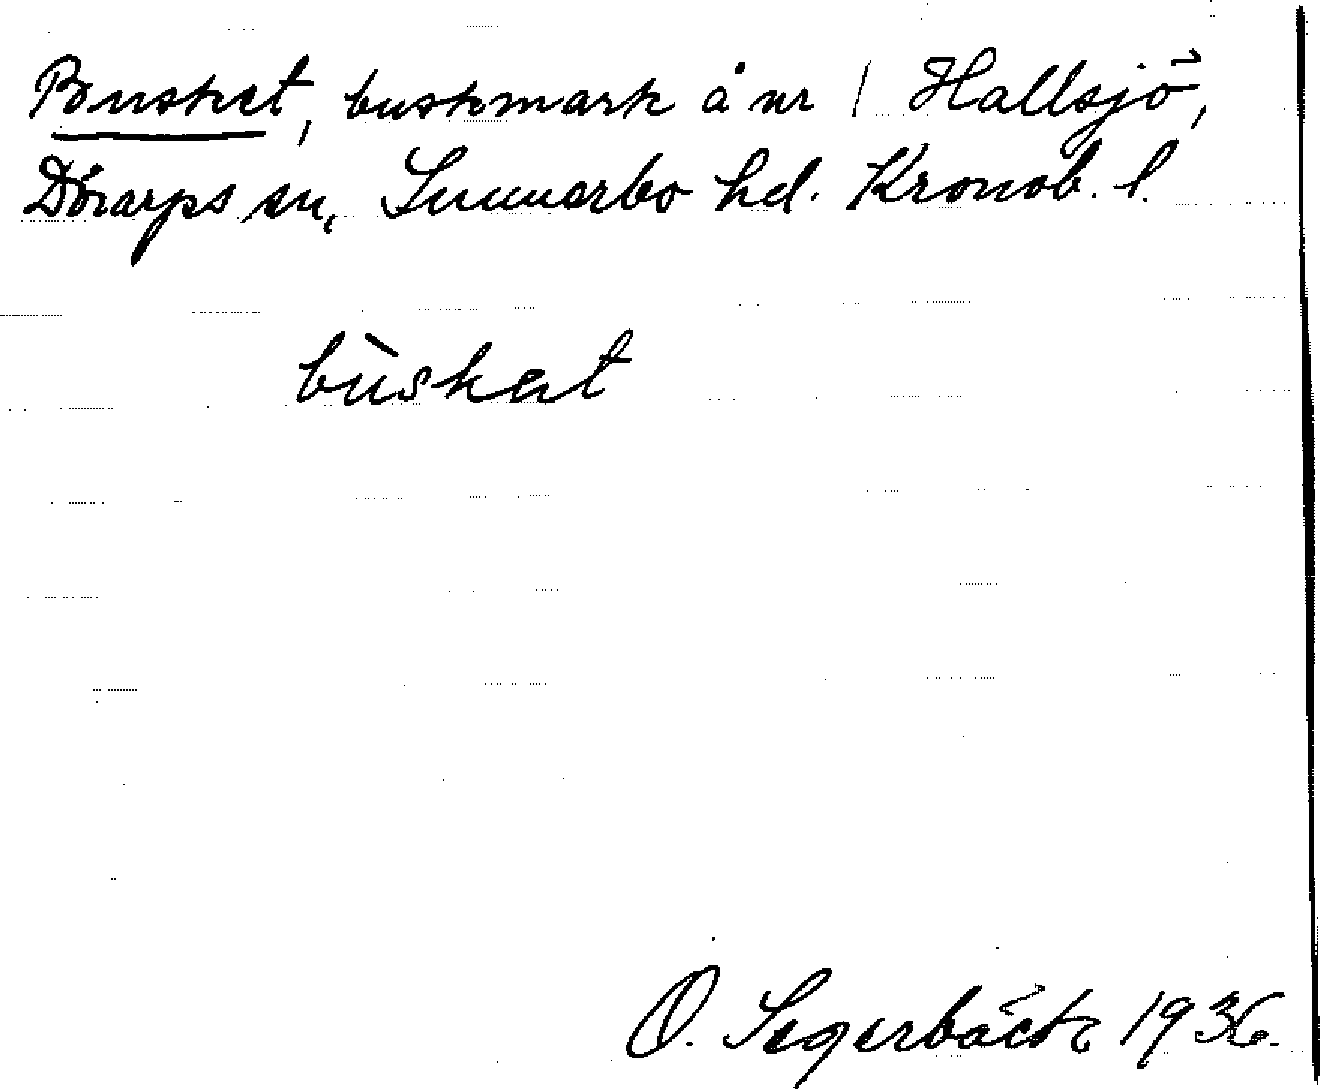 Busket, buskmark å nr 1 Hallsjö,
Dörarps sn, Sunnerbo hd. Kronob. l.
bùskat
O. Segerbäck 1936.